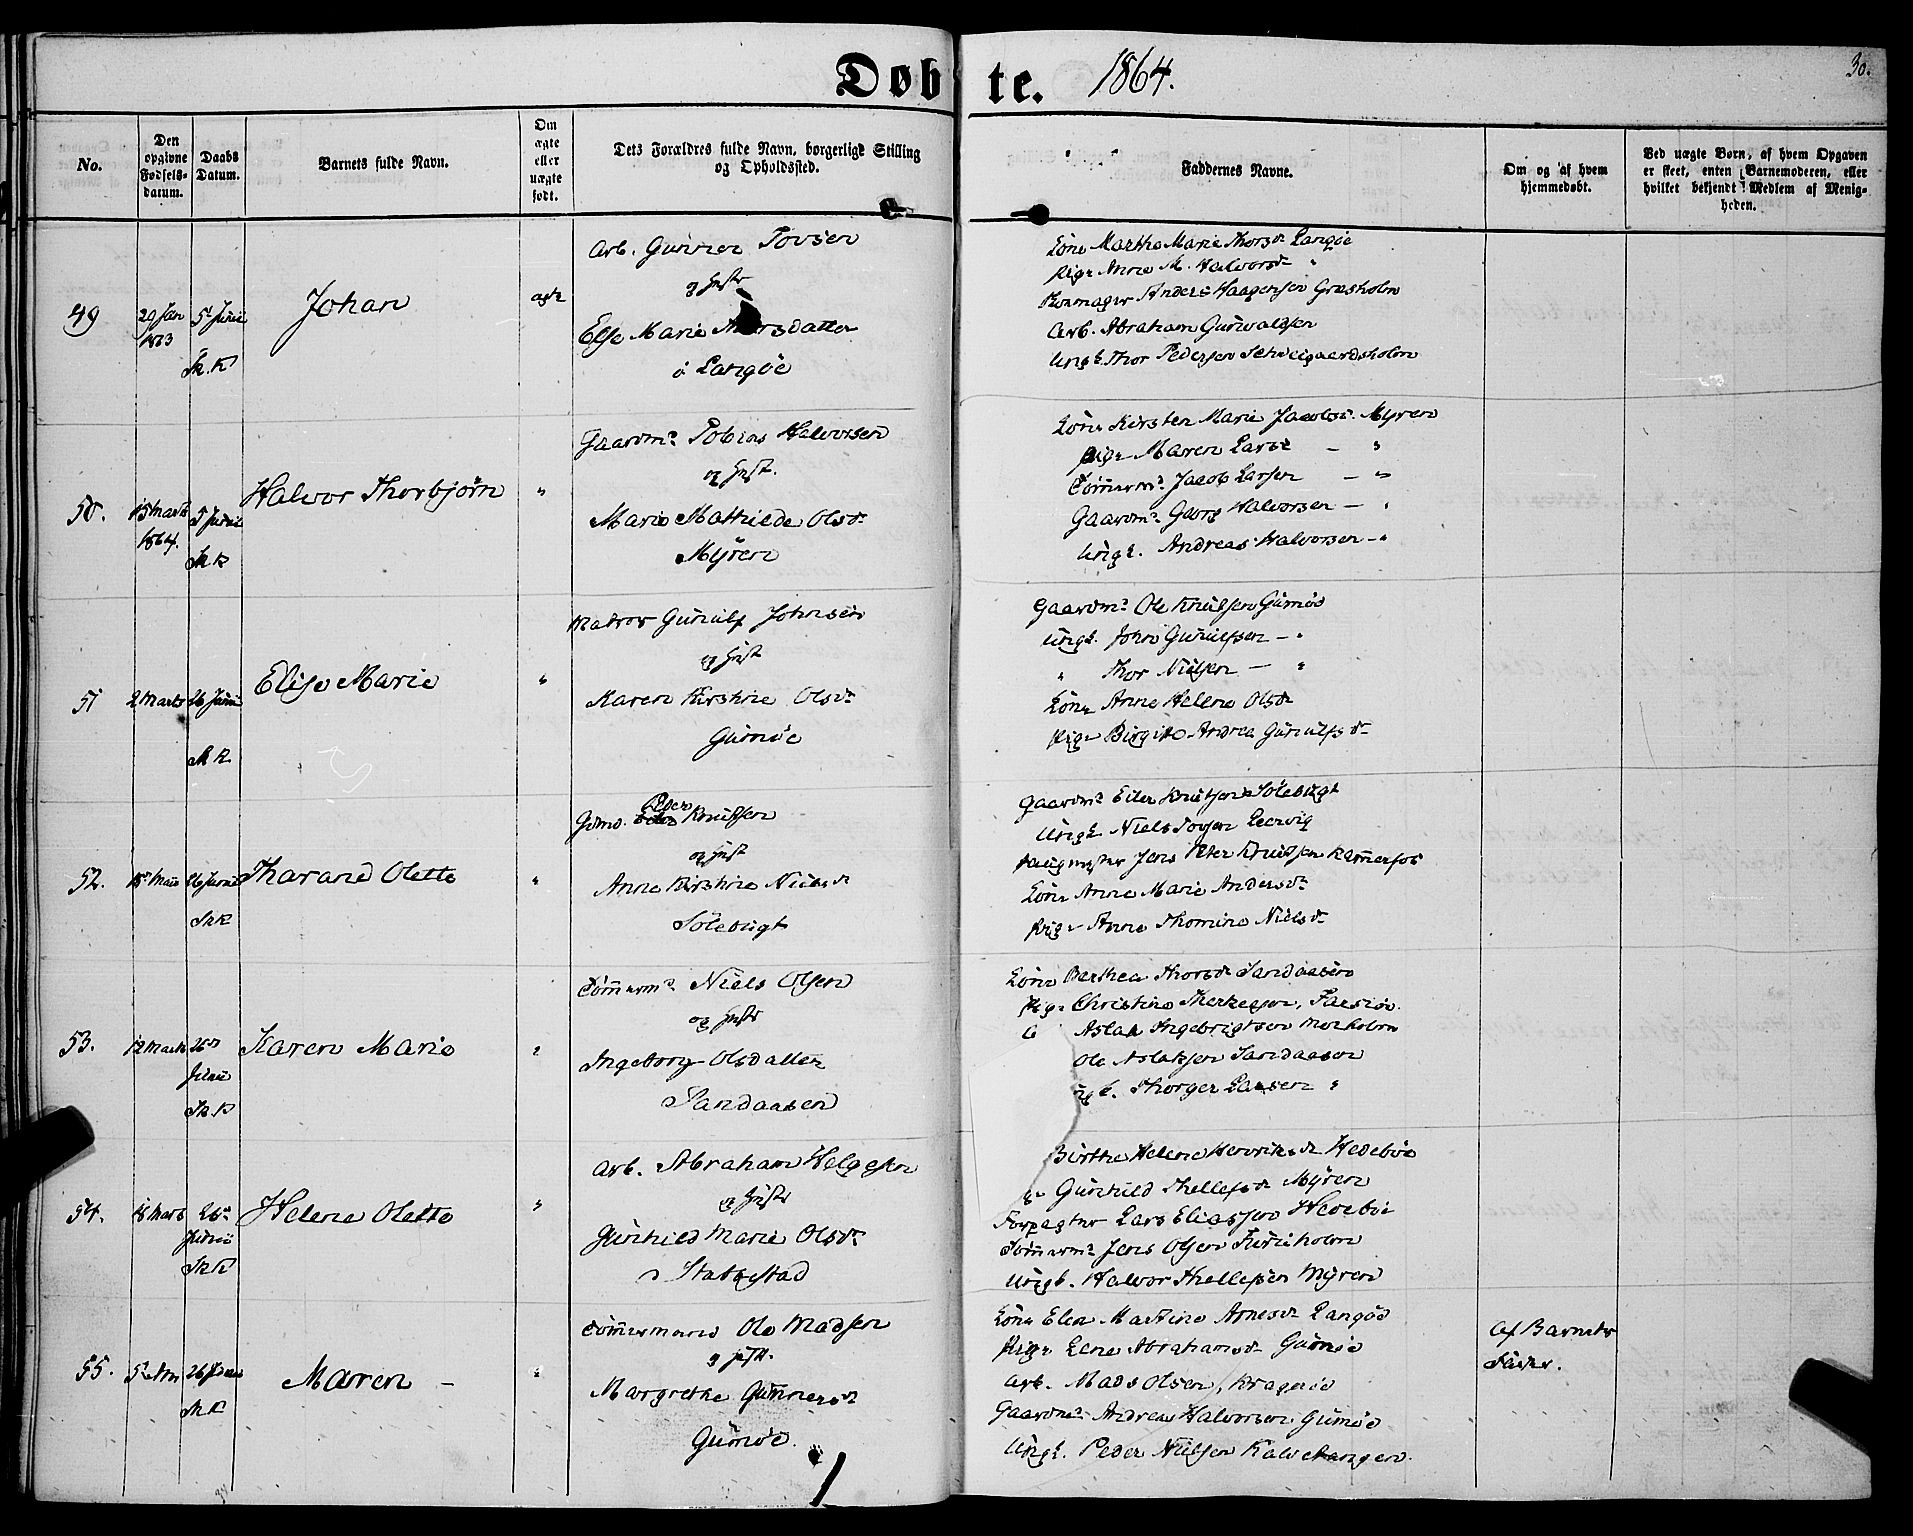 Døbte. 1864.
30.
No.
Den opgivne Fødsels-datum.
Daabs Datum.
Barnets fulde Navn.
Om ægte eller uægte født.
Dets Forældres fulde Navn, borgerlige Stilling og Opholdssted.
Faddernes Navne.
Om og af hvem hjemmedøbt.
Ved uægte Børn, af hvem Opgaven er skeet, enten Barnemoderen, eller hvilket bekjendt Medlem af Menigheden.
49
29 Jan 1863
5t Junii
Sk. K
Johan
ægte
Arb. Gunner Tovsen
og Hustr
Else Marie Thorsdatter
Langöe
Kone Marthe Marie Thorsdr Langöe
Pige Anne M. Halvorsdr "
Anders Haagensen Græsholm
Arb. Abraham Gunwaldsen
Ungk. Thor Pedersen Schweigaardsholm
50.
15 Marts 1864.
5 Junii
Sk K
Halvor Thorbjørn
"
Gaardm. Tobias Halvorsen
og Hust.
Marie Mathilde Olsdr
Myren
Kone Kirsten Marie Jacobsdr. Myren
Pige Maren Larsdr — "
Tömmerm. Jacob Larsen — "
Gaardm. Georg Halvorsen — "
Ungk. Andreas Halvorsen — "
51
2 Marts
26 Junii
Sk K
Elise Marie
"
Matros Gunulf Johnsen
og Hust
Karen Kirstine Olsdr
Gumöe
Gaardm. Ole Knutsen Gumöe
Ungk. John Gunulfsen — "
" Thor Nielsen — "
Kone Anne Helene Olsdr
Pige Birgitte Andrea Gunulfsdr
52.
26 Junii
Sk K
Tharand Olette
"
Gmd. Peder Knutsen
og Hust
Anne Kirstine Nielsdr
Sölebugt
Gaardm. Eiler Knutsen Sölebugt
Ungk Niels Tovsen
Jens Peter Knutsen Kammerfos
Kone Anne Marie Andersdr
Pige Anne Thomine Nielsdr
53.
12 Marts
26de Junii
Sk K
Karen Marie
"
Tömmerm. Niels Olsen
og Hustr
Ingeborg Olsdatter
Sandaasen
Kone Berthea Thorsdr Sandaasen
Pige Christine Therkelsen,
Aslak Ingebrigtsen
Ole Aslaksen Sandaasen
Thorger Larsen "
54.
18 Marts
26de Junii
Sk K
Helene Olette
"
Arb. Abraham Helgesen
og Hustr
Gunhild Marie Olsdr
Stabbestad
Birthe Helene Henriksdr Hedeböe
Gunhild Thellefsdr Myren
Forpagter Lars Eliassen Hedeböe
Tömmerm. Jens Olsen Furuholm
Ungk. Halvor Thellefsen Myren
55.
26 Junii
Sk K
Maren —
"
Tömmermand Ole Madsen
og Hust.
Margrethe Gunnersdr
Gumöe.
Kone Elen Martine Arnesdr Langöe
Pige Lene Abrahamsdr Gumöe
Arb. Mads Olsen, Kragerøe
Gaardm. Andreas Halvorsen Gumöe
Ungk. Peder Nielsen Kalvehangen.
Af Barnets Fader.